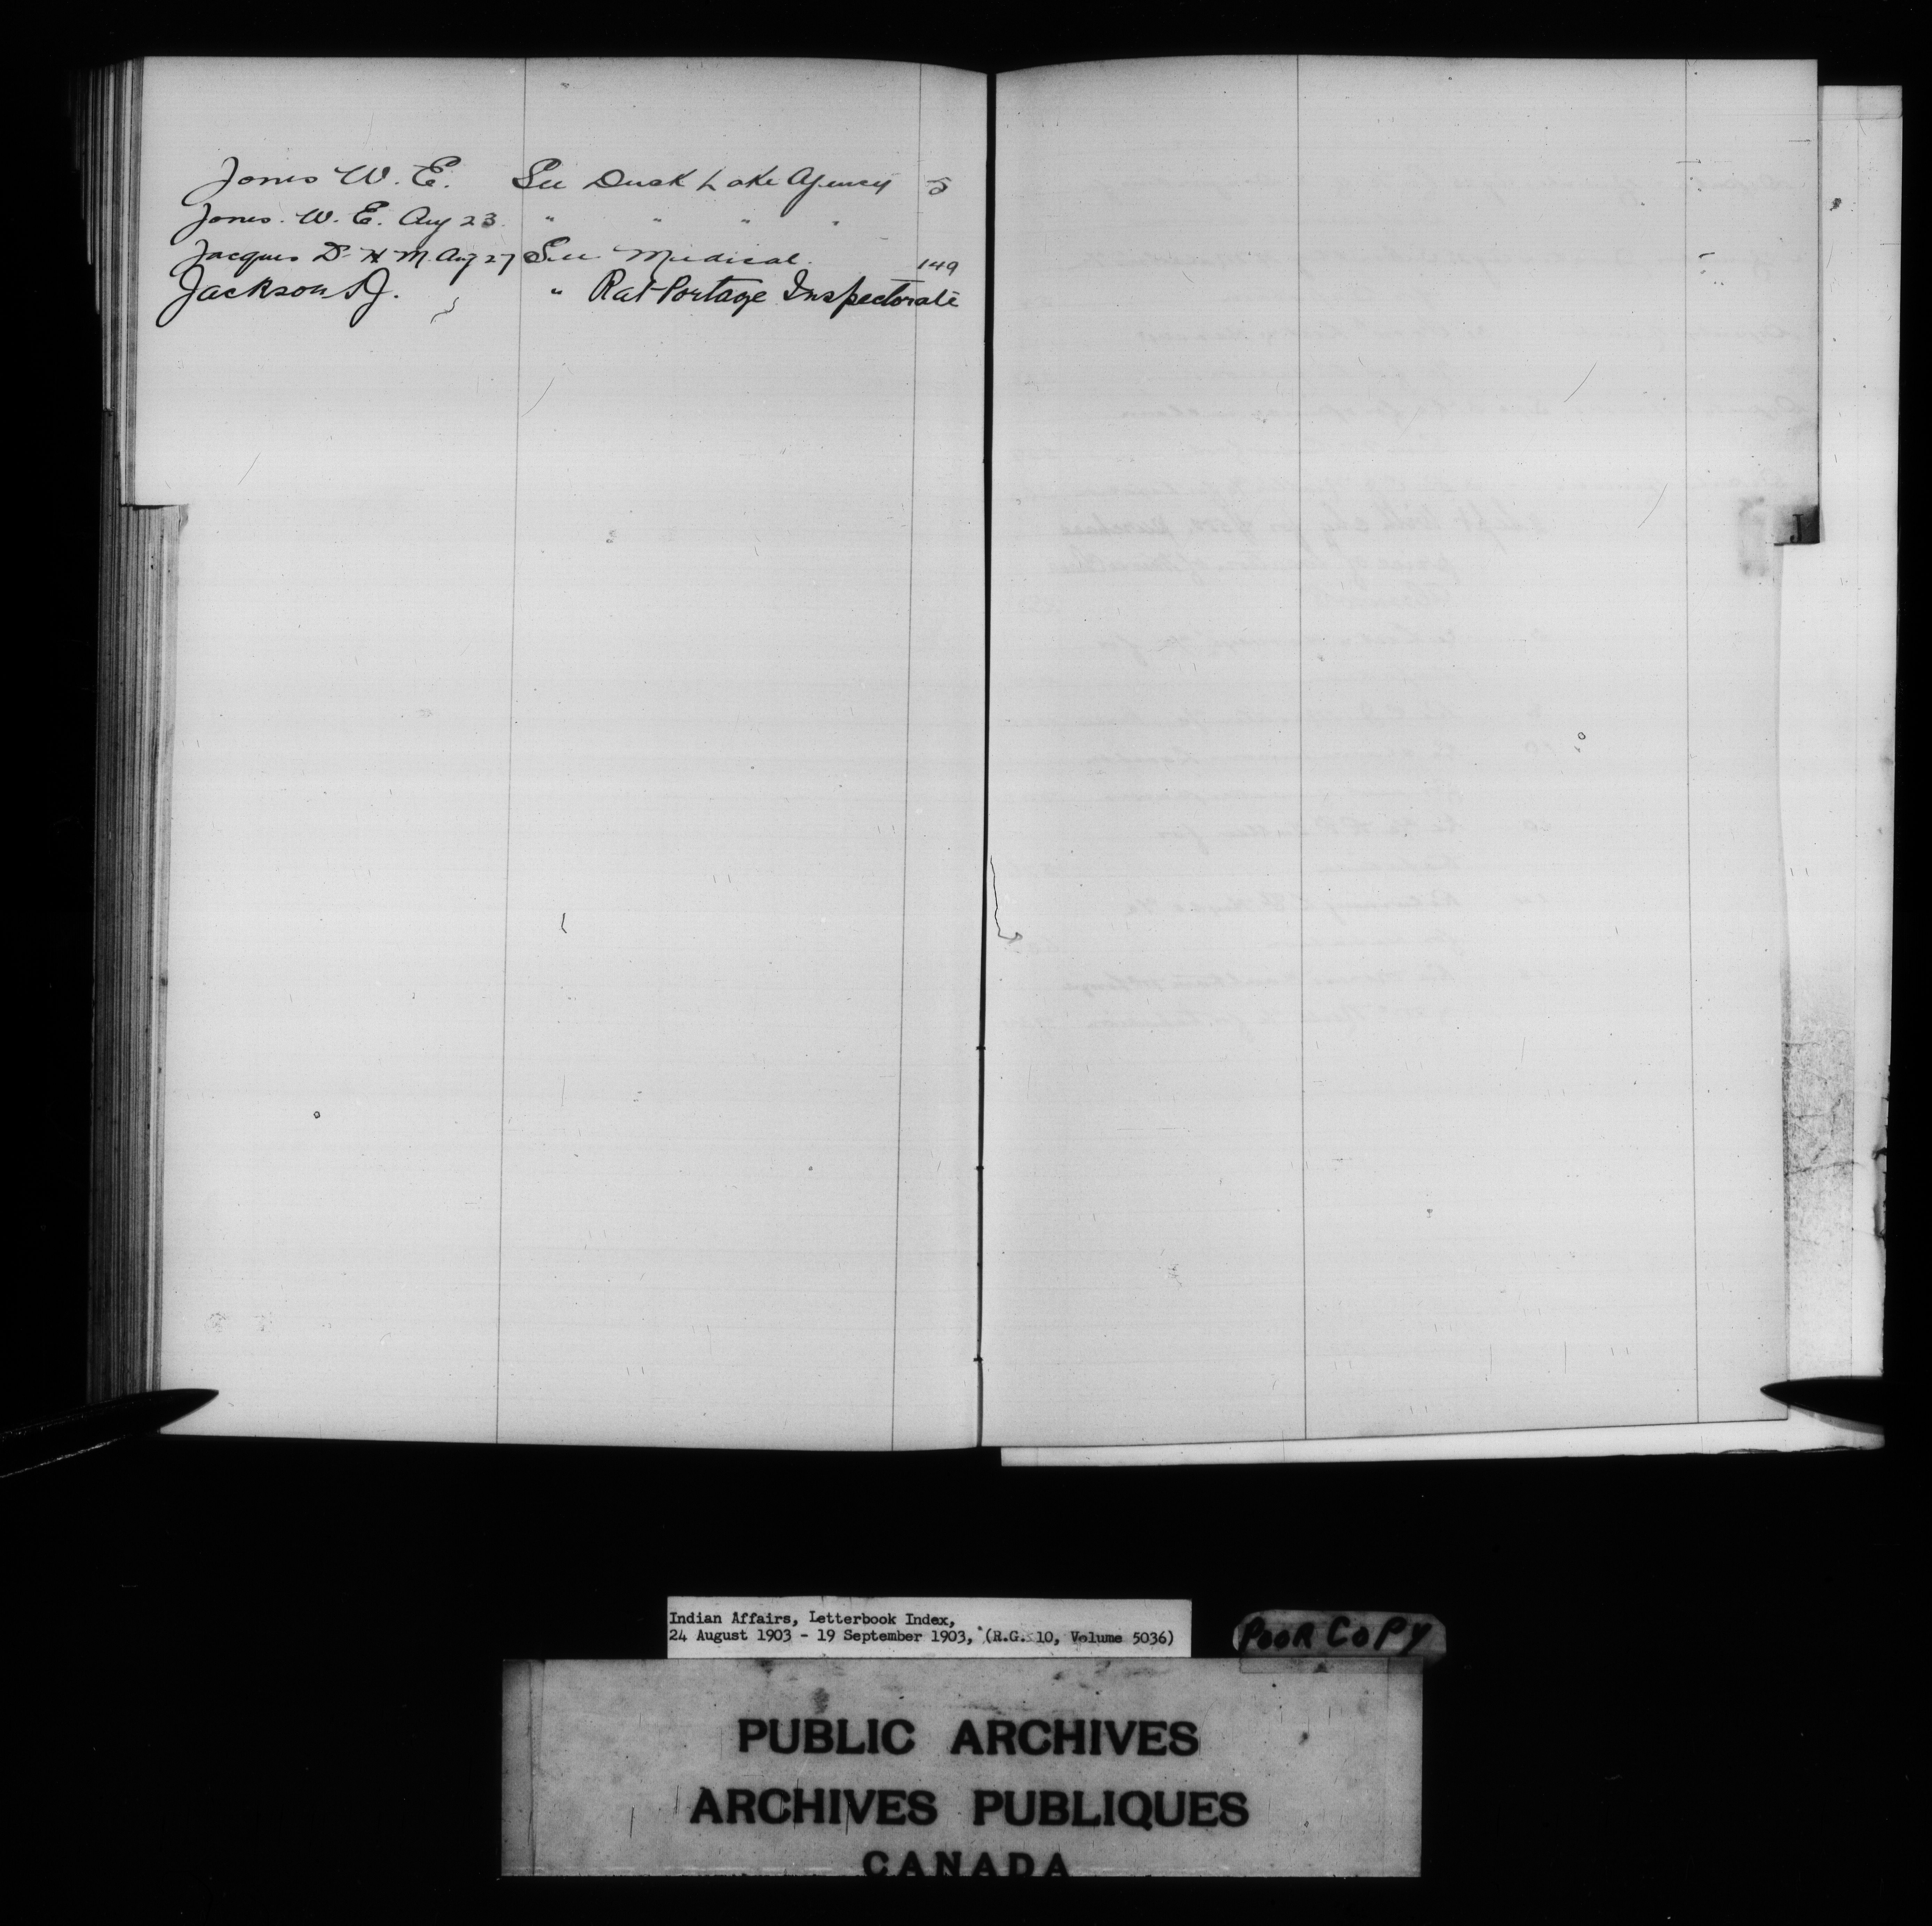 Jones W. E. See Duck Lake Agency 5
Jones. W. E. Aug 23. " " " "
Jacques Dr. H. M. Aug 27 See Medical. 149
Jackson " Rat Portage Inspectorate
J
Indian Affairs, Letterbook Index,
24 August 1903 - 19 September 1903, (R.G. 10, Volume 5036)
POOR COPY
PUBLIC ARCHIVES
ARCHIVES PUBLIQUES
CANADA